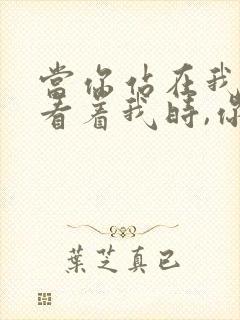 當你站在我
看着我時,
葉芝真已